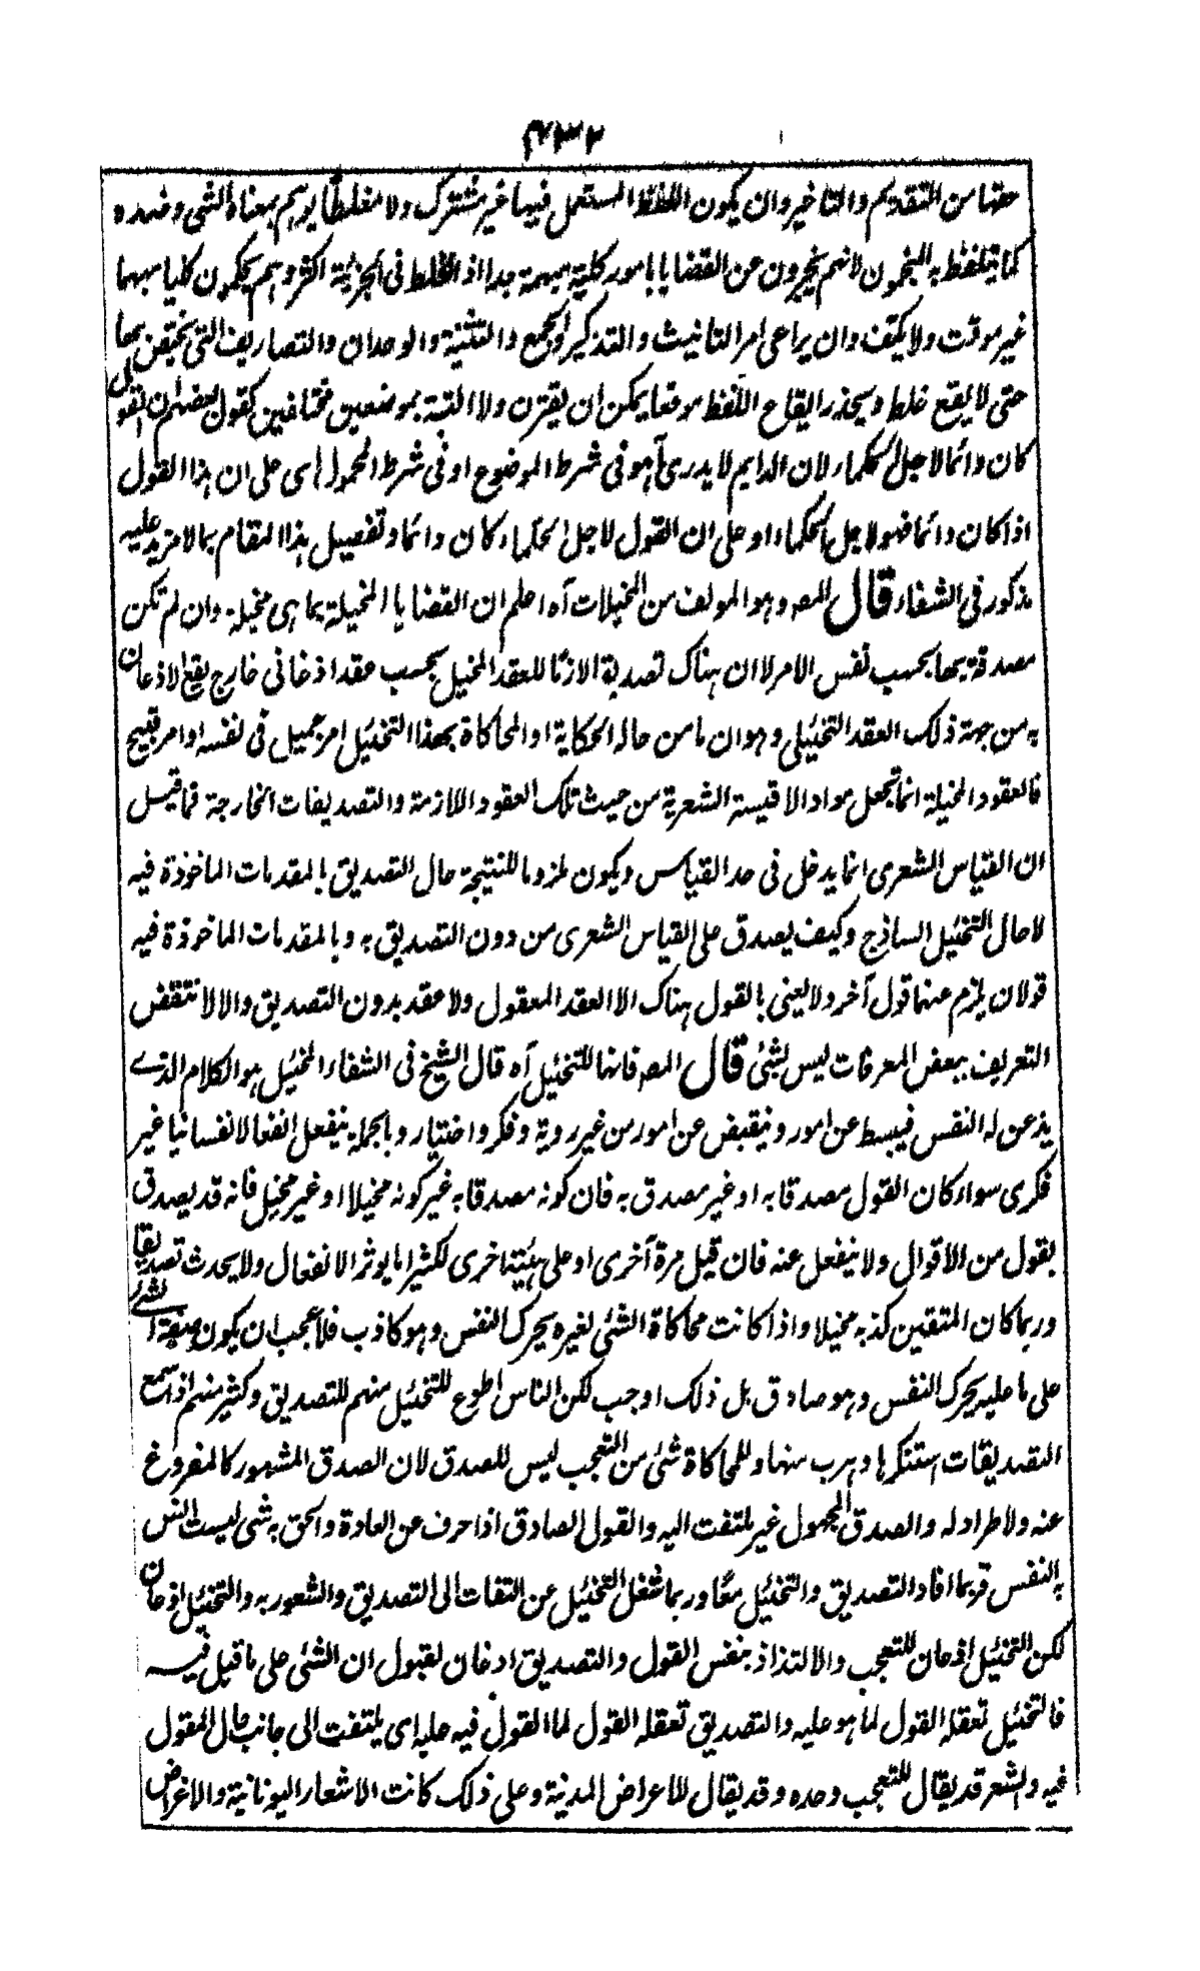 ۴۳۲
حقها من التقديم والتاخير وان يكون اللفظ المستعمل فيها غير مشترك ولا مغلطا يوهم معناه الشى وضده
كما يتلفظ به المنجمون لانهم يخبرون عن القضايا بامور كلية مبهمة جدا اذ الغلط فى الجزئية اكثر وهم يحكمون كليا مبهما
غير موقت ولا مكيف وان يراعى امر التانيث والتذكير والجمع والتثنية والوحدان والتصاريف التى يختص بها
حتى لا يقع غلط وسيحذر ايقاع اللفظ موقعا يمكن ان يقترن ولا البتة بموضعين مختلفين كقول بعضهم ان القول
كان دائما لاجل الحكماء لان الدايم لا يدرى أهو فى شرط الموضوع او فى شرط المحمول اى على ان هذا القول
اذا كان دائما فهو لاجل الحكماء او على ان القول لاجل الحكماء كان دائما وتفصيل هذا المقام بما لا مزيد عليه
مذكور فى الشفاء قال المصه وهو المولف من المخيلات آه اعلم ان القضايا المخيلة بما هى مخيلة وان لم تكن
مصدقة بها بحسب نفس الامر لا ان هناك تصديقا لازما للعقد المخيل بحسب عقد اذعانى خارج يقع الاذعان
به من جهة ذلك العقد التخئيلى وهو ان ما من حاله الحكاية او المحاكاة بهذا التخئيل امر جميل فى نفسه او امر قبيح
فالعقود المخيلة انما تجعل مواد الاقيسة الشعرية من حيث تلك العقود اللازمة والتصديقات الخارجة فما قيل
ان القياس الشعرى انما يدخل فى حد القياس ويكون ملزوما للنتيجة حال التصديق بالمقدمات الماخوذة فيه
لا حال التخئيل الساذج وكيف يصدق على القياس الشعرى من دون التصديق به وبالمقدمات الماخوذة فيه
قولان يلزم عنهما قول آخر ولا يعنى بالقول هناك الا العقد المعقول ولا عقد بدون التصديق والا لانتقض
التعريف ببعض المعرفات ليس بشئ قال المصه فانها للتخئيل آه قال الشيخ فى الشفاء المخئيل هو الكلام الذے
يذعن له النفس فيبسط عن امور وينقبض عن امور من غير روية وفكر واختيار وبالجملة ينفعل انفعالا نفسانيا غير
فكرى سواء كان القول مصدقا به او غير مصدق به فان كونه مصدقا به غير كونه مخيلا او غير مخيل فانه قد يصدق
بقول من الاقوال ولا ينفعل عنه فان قيل مرة آخرى او على هيئة اخرى لكثيرا ما يوثر الانفعال ولا يحدث تصديقا
وربما كان المتقين كذبه مخيلا واذا كانت محاكاة الشئ لغيره يحرك النفس وهو كاذب فلا عجب ان يكون صفة الشئ
على ما عليه يحرك النفس وهو صادق بل ذلك اوجب لكن الناس اطوع للتخئيل منهم للتصديق وكثير منهم اذا سمع
التصديقات استنكرها وهرب منها وللمحاكاة شئ من التعجب ليس للصدق لان الصدق المشهور كالمفروغ
عنه ولا طراد له والصدق المجهول غير ملتفت اليه والقول الصادق اذا حرف عن العادة والحق به شى ليست انس
به النفس فربما افاد التصديق والتخئيل معًا وربما شغل التخئيل عن التفات الى التصديق والشعور به والتخئيل اذعان
لكن التخئيل اذعان للتعجب والالتذاذ بنفس القول والتصديق اذعان لقبول ان الشئ على ما قيل فيه
فالتخئيل تعقله القول لما هو عليه والتصديق تعقله القول لما القول فيه عليه اى يلتفت الى جانب حال المقول
فيه والشعر قد يقال للتعجب وحده وقد يقال للاعراض المدنية وعلى ذلك كانت الاشعار اليونانية والاغراض